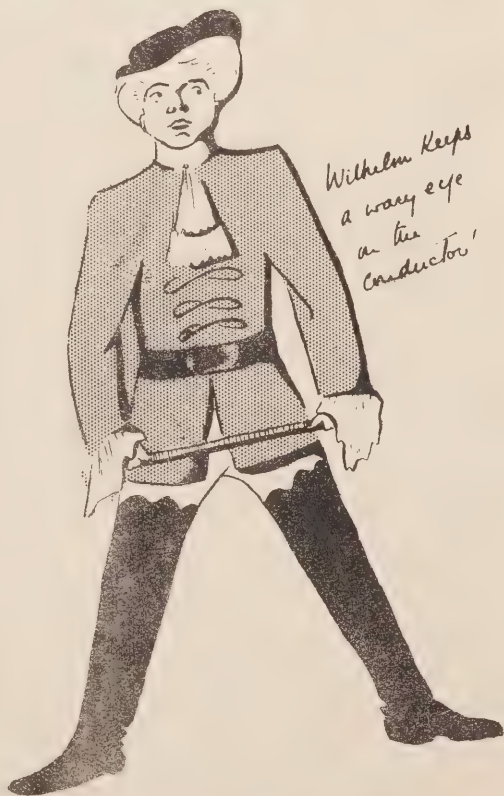 Wilhelm Keeps
a wary eye
on the
conductor!